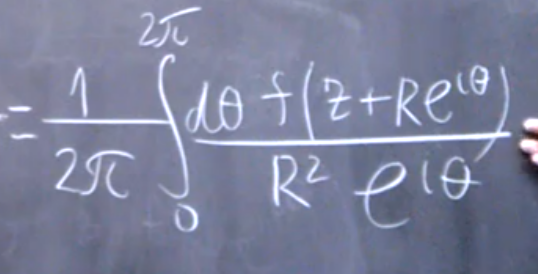 = \frac{1}{2\pi} \int_0^{2\pi} \frac{d\theta f(z+Re^{i\theta})}{R^2 e^{i\theta}}